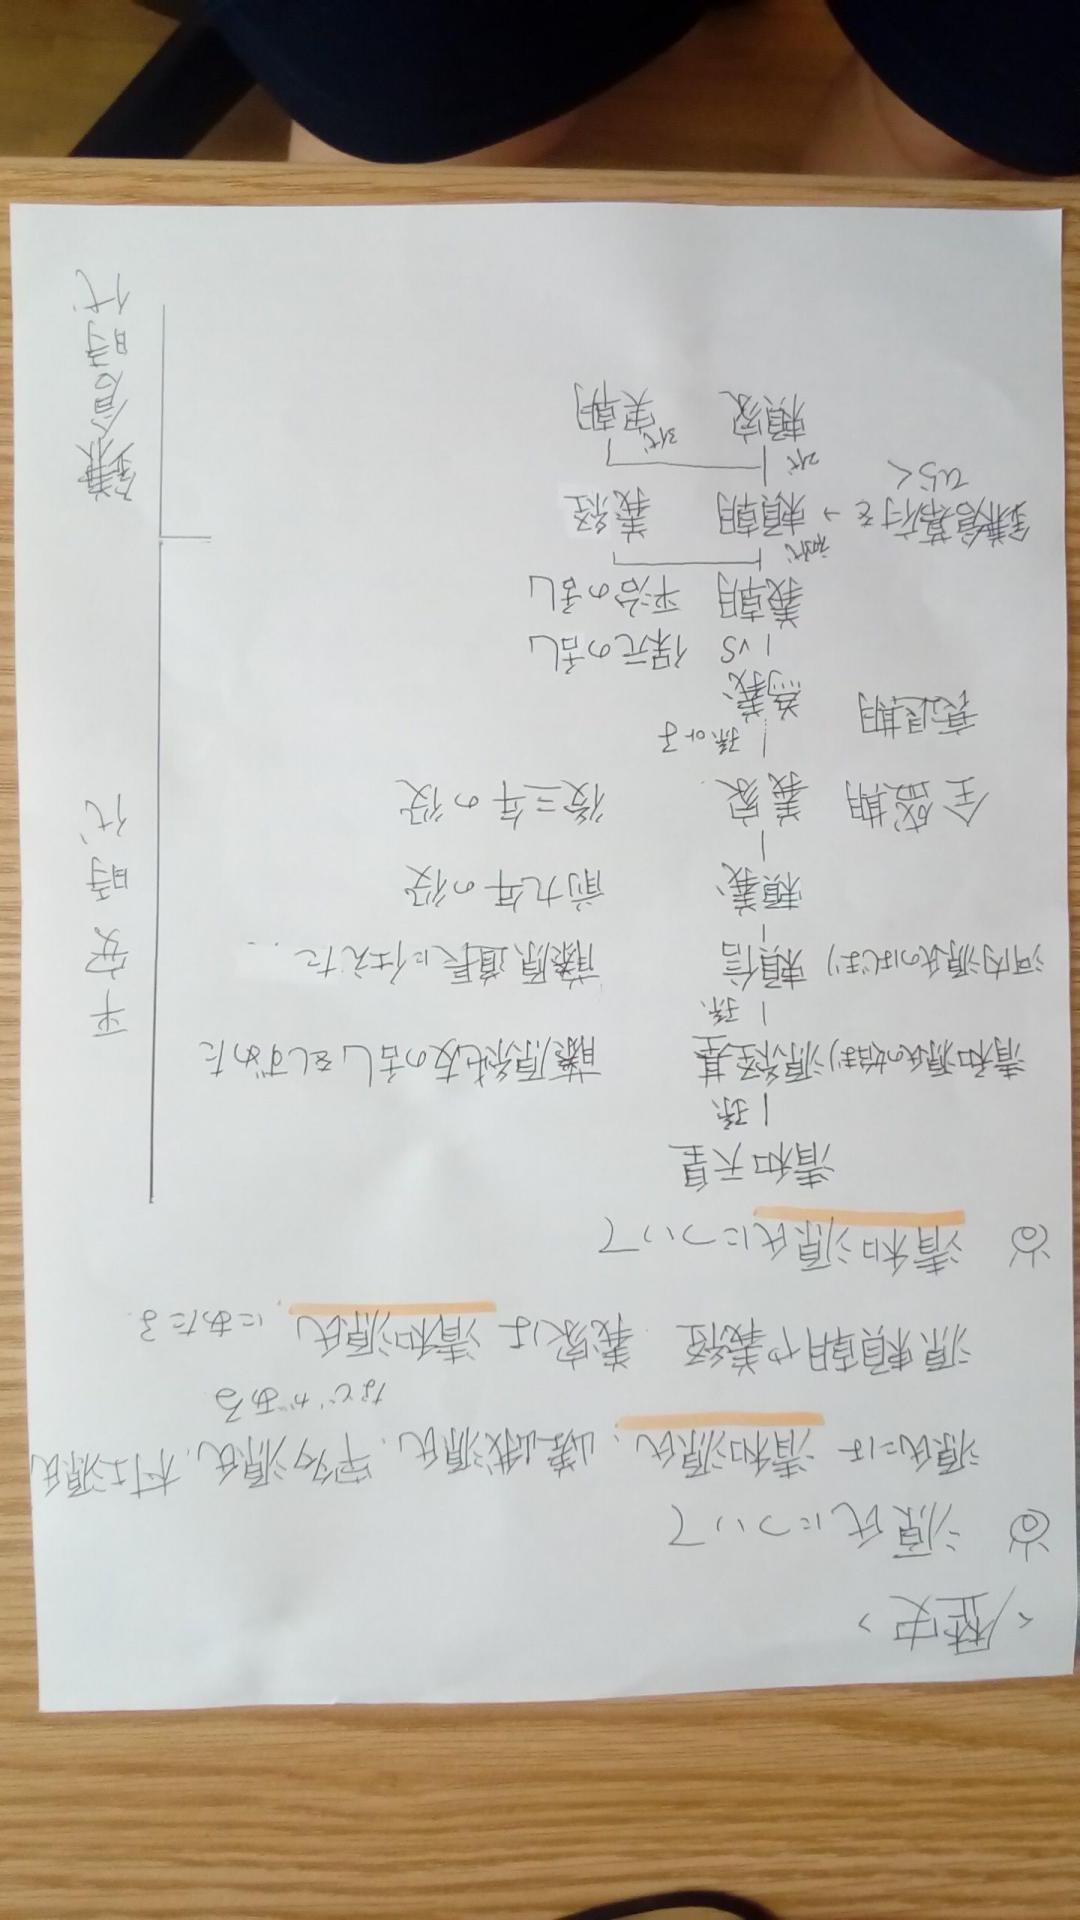 〈歴史〉
◎ 源氏について
源氏には 清和源氏、嵯峨源氏、宇多源氏、村上源氏
などがある
源頼朝や義経 義家は 清和源氏 にあたる
◎ 清和源氏について
清和天皇
孫
清和源氏の始まり) 源経基 藤原純友の乱をしずめた
孫
河内源氏のはじまり) 頼信 藤原道長に仕えた
頼義 前九年の役
全盛期 義家 後三年の役
孫or子
衰退期 為義
VS 保元の乱
義朝 平治の乱
初代
鎌倉幕府を → 頼朝 義経
ひらく
2代 3代
頼家 実朝
平安時代
鎌倉時代